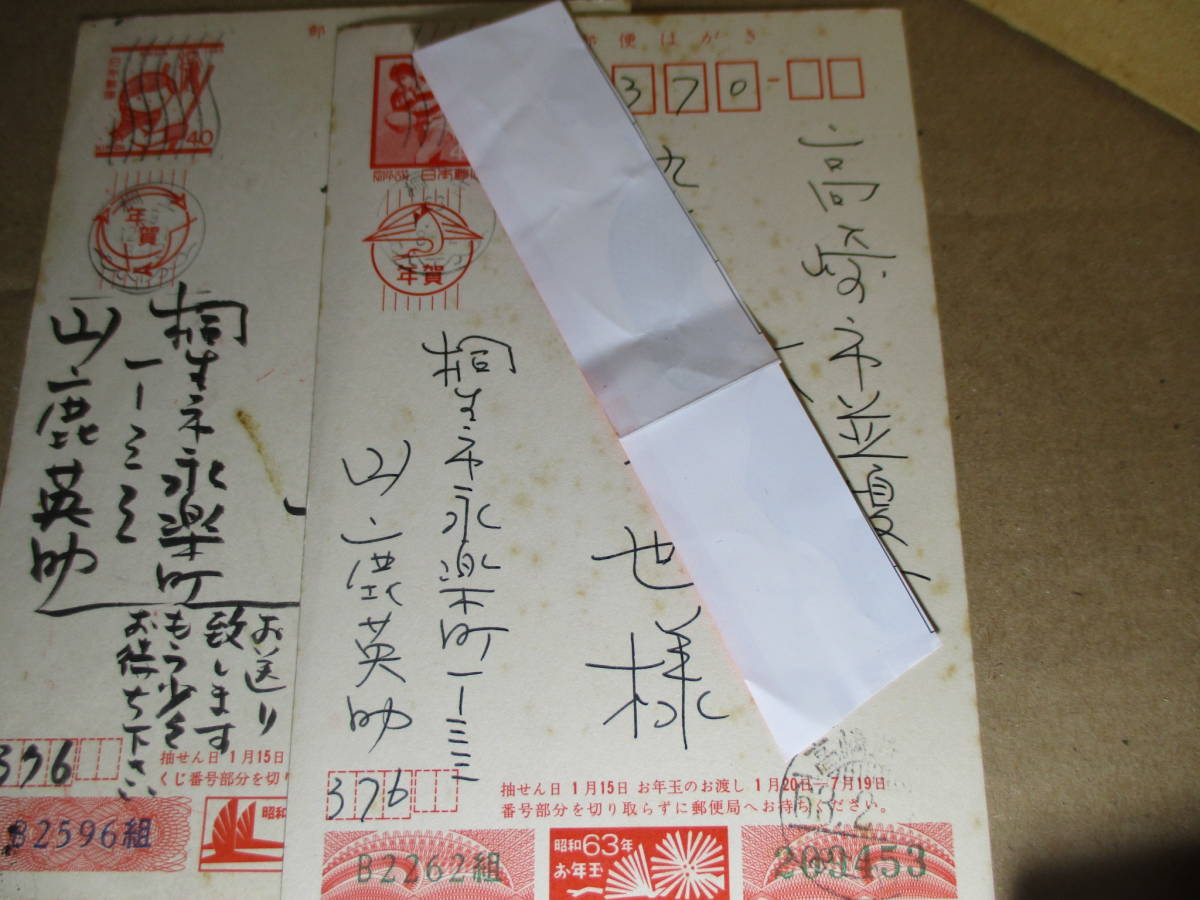 郵便はがき
370
高崎市並榎
九
也様
日本郵便
年賀
桐生市永楽町一ー三三
山鹿英助
376
抽せん日 1月15日 お年玉のお渡し 1月20日―7月19日
番号部分を切り取らずに郵便局へお持ちください。
B2262組
昭和63年
お年玉
203453
郵
日本郵便
40
NIPPON
年賀
桐生市永楽町
一ー三三
山鹿英助
お送り
致します
もう少々
お待ち下さい
376
抽せん日 1月15日
くじ番号部分を切り
B2596組
昭和